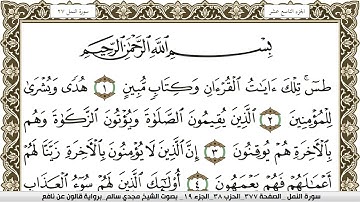 الجزء التاسع عشر
سورة النمل ٢٧
بِسْمِ اللَّهِ الرَّحْمَٰنِ الرَّحِيمِ
طسٓ تِلْكَ ءَايَٰتُ الْقُرْءَانِ وَكِتَابٖ مُّبِينٍ ١ هُدىٗ وَبُشْرَىٰ
لِلْمُؤْمِنِينَ ٢ الَّذِينَ يُقِيمُونَ الصَّلَوٰةَ وَيُؤْتُونَ الزَّكَوٰةَ وَهُم
بِالْأٓخِرَةِ هُمْ يُوقِنُونَ ٣ إِنَّ الَّذِينَ لَا يُؤْمِنُونَ بِالْأٓخِرَةِ زَيَّنَّا لَهُمْ
أَعْمَٰلَهُمْ فَهُمْ يَعْمَهُونَ ٤ أُوْلَٰٓئِكَ الَّذِينَ لَهُمْ سُوٓءُ الْعَذَابِ
سورة النمل _ الصفحة ٣٧٧ _ الحزب ٣٨ _ الجزء ١٩ _ بصوت الشيخ مجدي سالم _ برواية قالون عن نافع